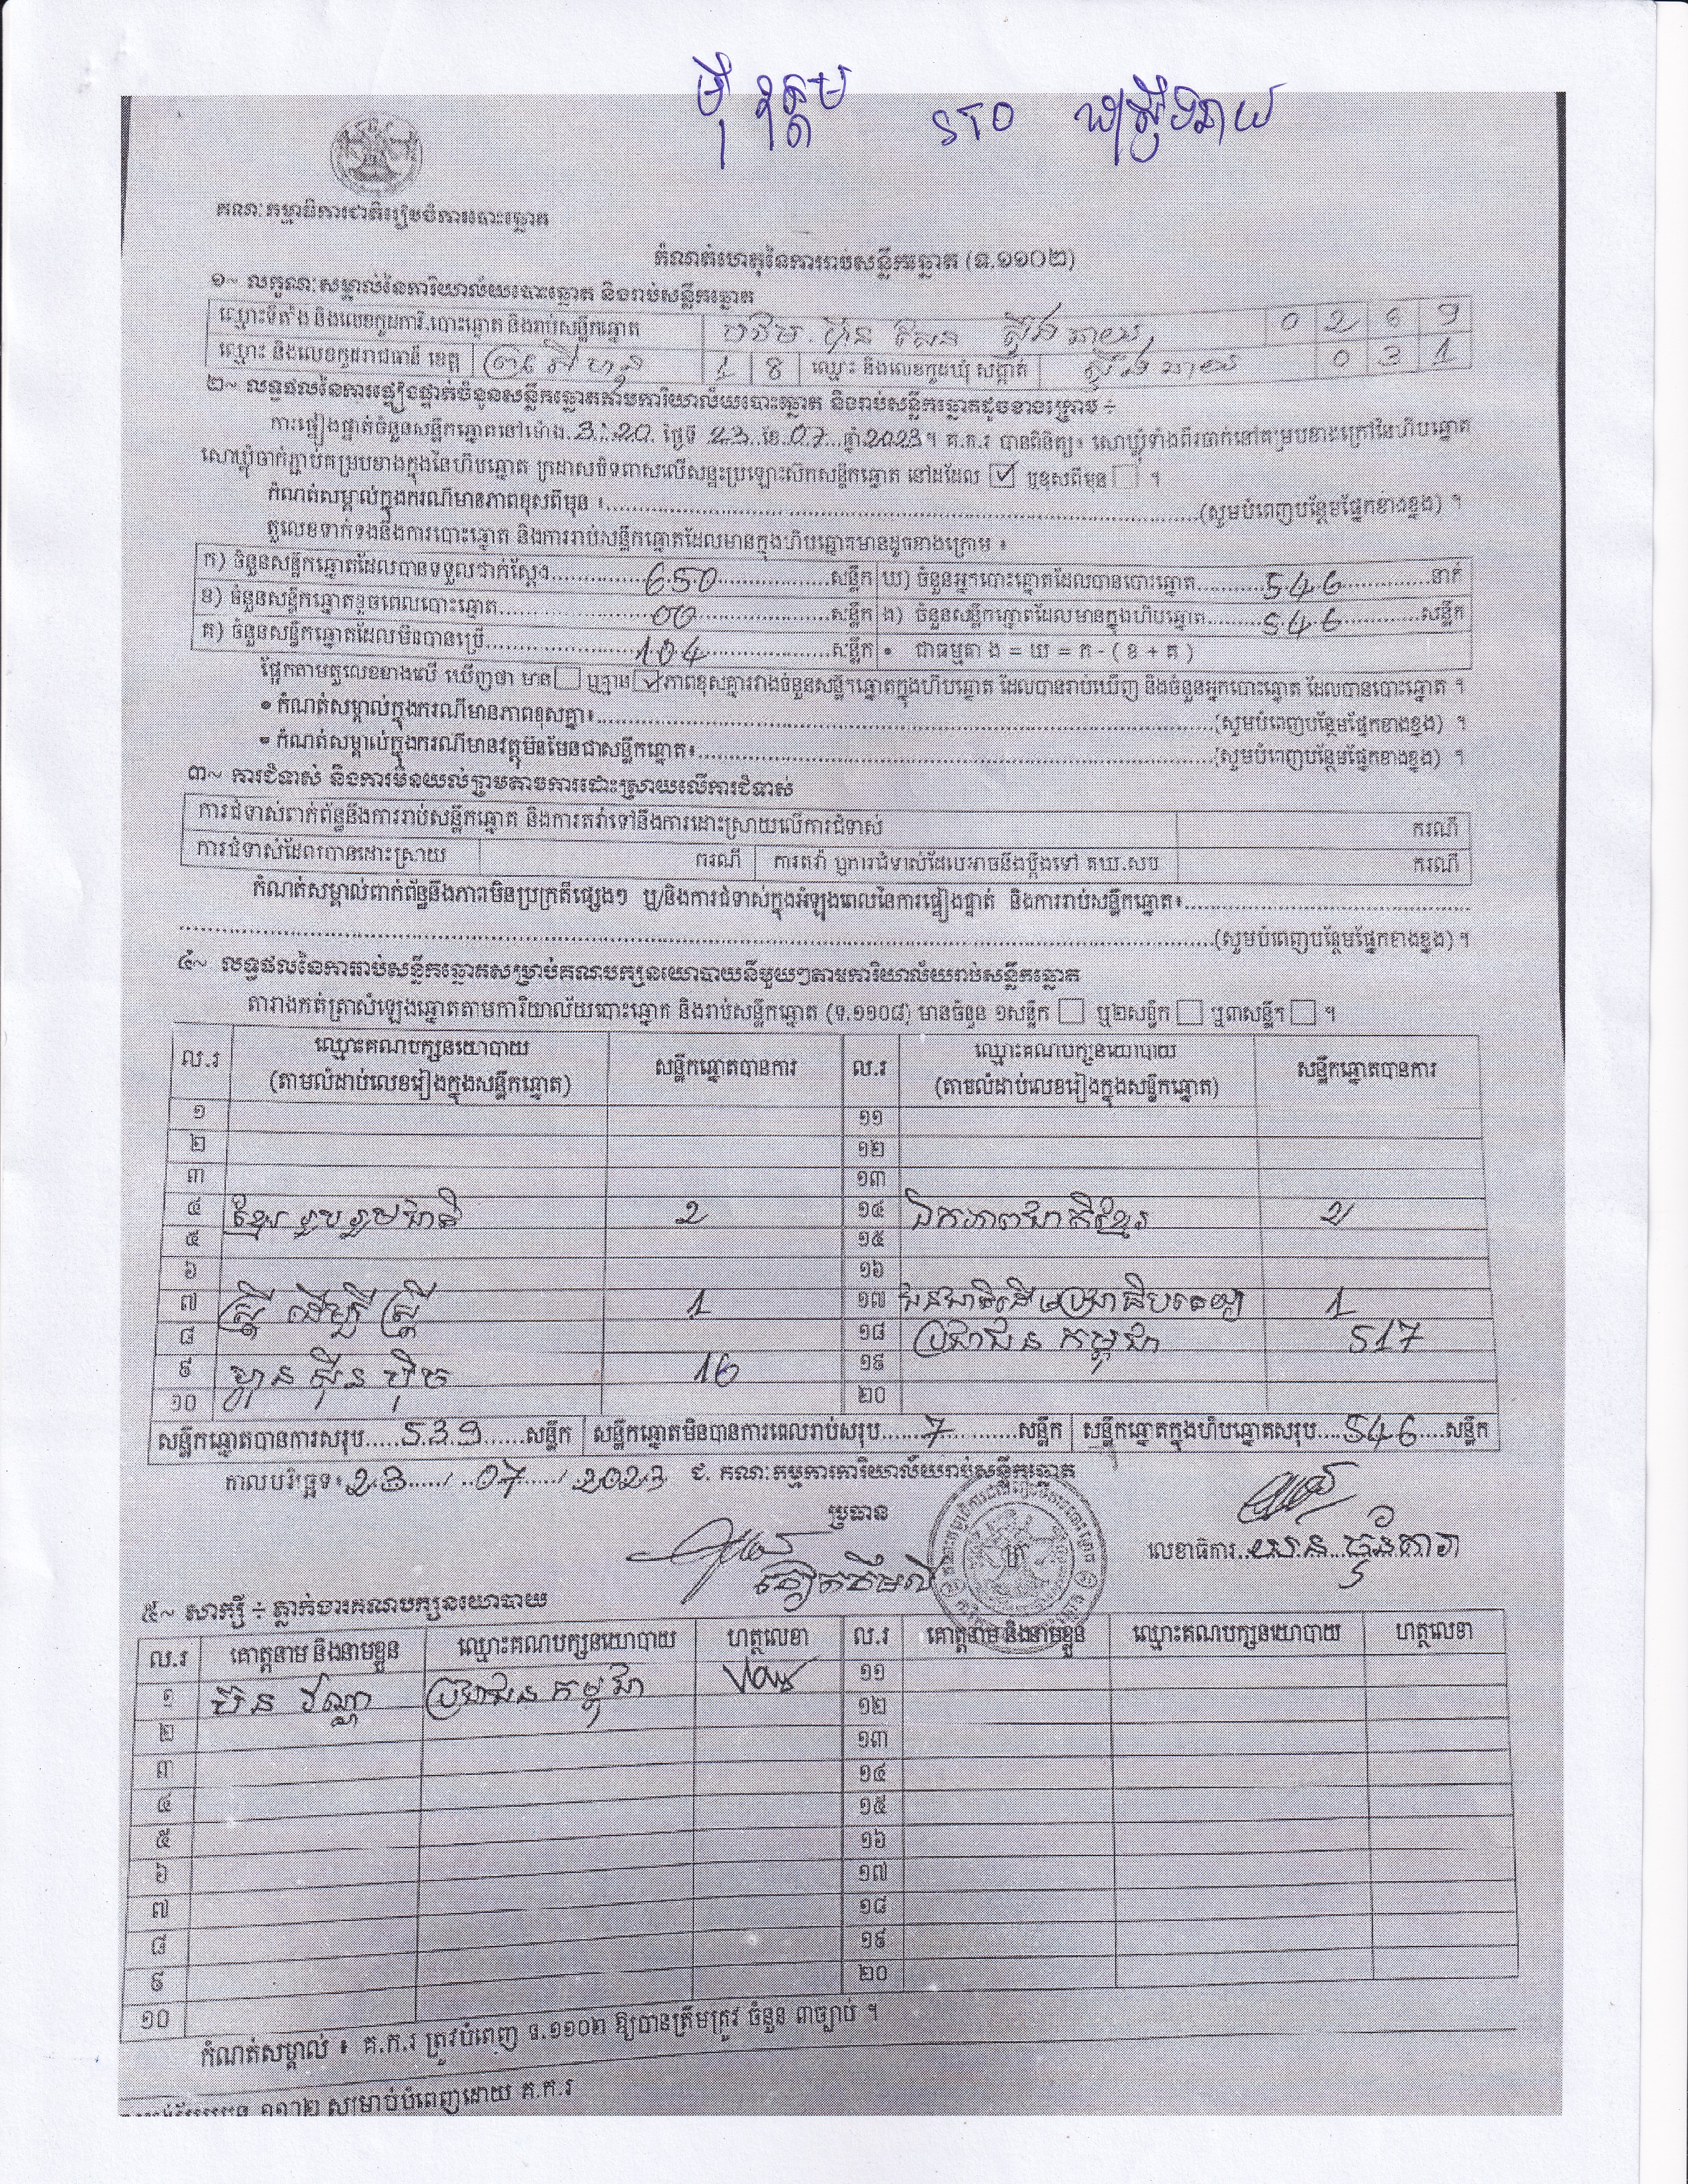 ម៉ី វុត្ថម STO ឃុំស្ទឹងឆាយ
គណៈកម្មាធិការជាតិរៀបចំការបោះឆ្នោត
កំណត់ហេតុនៃការរាប់សន្លឹកឆ្នោត (ទ.១១០២)
១~ លក្ខណៈសម្គាល់នៃការិយាល័យបោះឆ្នោត និងរាប់សន្លឹកឆ្នោត
ឈ្មោះទីតាំង និងលេខកូដការិ.បោះឆ្នោត និងរាប់សន្លឹកឆ្នោត បឋម ប៊ុន រ៉ានី ហ៊ុន សែន ស្ទឹងឆាយ 0 2 6 9
ឈ្មោះ និងលេខកូដរាជធានី ខេត្ត ព្រះសីហនុ 1 8 ឈ្មោះ និងលេខកូដឃុំ សង្កាត់ ស្ទឹងឆាយ 0 3 1
២~ លទ្ធផលនៃការផ្ទៀងផ្ទាត់ចំនួនសន្លឹកឆ្នោតតាមការិយាល័យបោះឆ្នោត និងរាប់សន្លឹកឆ្នោតដូចខាងក្រោម ÷
ការផ្ទៀងផ្ទាត់ចំនួនសន្លឹកឆ្នោតនៅម៉ោង 3:20 ថ្ងៃទី 23 ខែ 07 ឆ្នាំ 2023 ។ គ.ក.រ បានពិនិត្យ៖ សោឃ្លុំទាំងពីរចាក់នៅគម្របខាងក្រៅនៃហិបឆ្នោត
សោឃ្លុំចាក់ភ្ជាប់គម្របខាងក្នុងនៃហិបឆ្នោត ក្រដាសបិទពាសលើសន្ទះប្រឡោះស៊កសន្លឹកឆ្នោត នៅដដែល ☑ ឬខុសពីមុន ☐ ។
កំណត់សម្គាល់ក្នុងករណីមានភាពខុសពីមុន ៖..........(សូមបំពេញបន្ថែមផ្នែកខាងខ្នង) ។
តួលេខទាក់ទងនឹងការបោះឆ្នោត និងការរាប់សន្លឹកឆ្នោតដែលមានក្នុងហិបឆ្នោតមានដូចខាងក្រោម ៖
ក) ចំនួនសន្លឹកឆ្នោតដែលបានទទួលជាក់ស្តែង 650 សន្លឹក ឃ) ចំនួនអ្នកបោះឆ្នោតដែលបានបោះឆ្នោត 546 នាក់
ខ) ចំនួនសន្លឹកឆ្នោតខូចពេលបោះឆ្នោត 00 សន្លឹក ង) ចំនួនសន្លឹកឆ្នោតដែលមានក្នុងហិបឆ្នោត 546 សន្លឹក
គ) ចំនួនសន្លឹកឆ្នោតដែលមិនបានប្រើ 104 សន្លឹក • ជាធម្មតា ង = ឃ = ក - ( ខ + គ )
ផ្អែកតាមតួលេខខាងលើ ឃើញថា មាន ☐ ឬគ្មាន ☑ ភាពខុសគ្នារវាងចំនួនសន្លឹកឆ្នោតក្នុងហិបឆ្នោត ដែលបានរាប់ឃើញ និងចំនួនអ្នកបោះឆ្នោត ដែលបានបោះឆ្នោត ។
• កំណត់សម្គាល់ក្នុងករណីមានភាពខុសគ្នា៖..........(សូមបំពេញបន្ថែមផ្នែកខាងខ្នង) ។
• កំណត់សម្គាល់ក្នុងករណីមានវត្ថុមិនមែនជាសន្លឹកឆ្នោត៖..........(សូមបំពេញបន្ថែមផ្នែកខាងខ្នង) ។
៣~ ការជំទាស់ និងការមិនយល់ព្រមតាមការដោះស្រាយលើការជំទាស់
ការជំទាស់ពាក់ព័ន្ធនឹងការរាប់សន្លឹកឆ្នោត និងការតវ៉ាទៅនឹងការដោះស្រាយលើការជំទាស់ ករណី
ការជំទាស់ដែលបានដោះស្រាយ ករណី ការតវ៉ា ឬការជំទាស់ដែលអាចនឹងប្តឹងទៅ គឃ.សប ករណី
កំណត់សម្គាល់ពាក់ព័ន្ធនឹងភាពមិនប្រក្រតីផ្សេងៗ ឬ/និងការជំទាស់ក្នុងអំឡុងពេលនៃការផ្ទៀងផ្ទាត់ និងការរាប់សន្លឹកឆ្នោត៖..........
..........(សូមបំពេញបន្ថែមផ្នែកខាងខ្នង) ។
៤~ លទ្ធផលនៃការរាប់សន្លឹកឆ្នោតសម្រាប់គណបក្សនយោបាយនីមួយៗតាមការិយាល័យរាប់សន្លឹកឆ្នោត
តារាងកត់ត្រាសំឡេងឆ្នោតតាមការិយាល័យបោះឆ្នោត និងរាប់សន្លឹកឆ្នោត (ទ.១១០៨) មានចំនួន ១សន្លឹក ☐ ឬ២សន្លឹក ☐ ឬ៣សន្លឹក ☐ ។
ល.រ ឈ្មោះគណបក្សនយោបាយ (តាមលំដាប់លេខរៀងក្នុងសន្លឹកឆ្នោត) សន្លឹកឆ្នោតបានការ ល.រ ឈ្មោះគណបក្សនយោបាយ (តាមលំដាប់លេខរៀងក្នុងសន្លឹកឆ្នោត) សន្លឹកឆ្នោតបានការ
១ ១១
២ ១២
៣ ១៣
៤ ខ្មែររួបរួមជាតិ 2 ១៤ ឯកភាពជាតិខ្មែរ 2
៥ ១៥
៦ ១៦
៧ ស្ត្រី ដើម្បី ស្ត្រី 1 ១៧ ជនជាតិដើមប្រជាធិបតេយ្យ 1
៨ ១៨ ប្រជាជន កម្ពុជា 517
៩ ហ្វ៊ុន ស៊ិន ប៉ិច 16 ១៩
១០ ២០
សន្លឹកឆ្នោតបានការសរុប 539 សន្លឹក សន្លឹកឆ្នោតមិនបានការពេលរាប់សរុប 7 សន្លឹក សន្លឹកឆ្នោតក្នុងហិបឆ្នោតសរុប 546 សន្លឹក
កាលបរិច្ឆេទ៖ 23 / 07 / 2023 ជ. គណៈកម្មការការិយាល័យរាប់សន្លឹកឆ្នោត
ប្រធាន
លេខាធិការ
៥~ សាក្សី ÷ ភ្នាក់ងារគណបក្សនយោបាយ
ល.រ គោត្តនាម និងនាមខ្លួន ឈ្មោះគណបក្សនយោបាយ ហត្ថលេខា ល.រ គោត្តនាម និងនាមខ្លួន ឈ្មោះគណបក្សនយោបាយ ហត្ថលេខា
១ ប៊ិន វណ្ណា ប្រជាជន កម្ពុជា ១១
២ ១២
៣ ១៣
៤ ១៤
៥ ១៥
៦ ១៦
៧ ១៧
៨ ១៨
៩ ១៩
១០ ២០
កំណត់សម្គាល់ ៖ គ.ក.រ ត្រូវបំពេញ ទ.១១០២ ឱ្យបានត្រឹមត្រូវ ចំនួន ៣ច្បាប់ ។
១១០២ សម្រាប់បំពេញដោយ គ.ក.រ